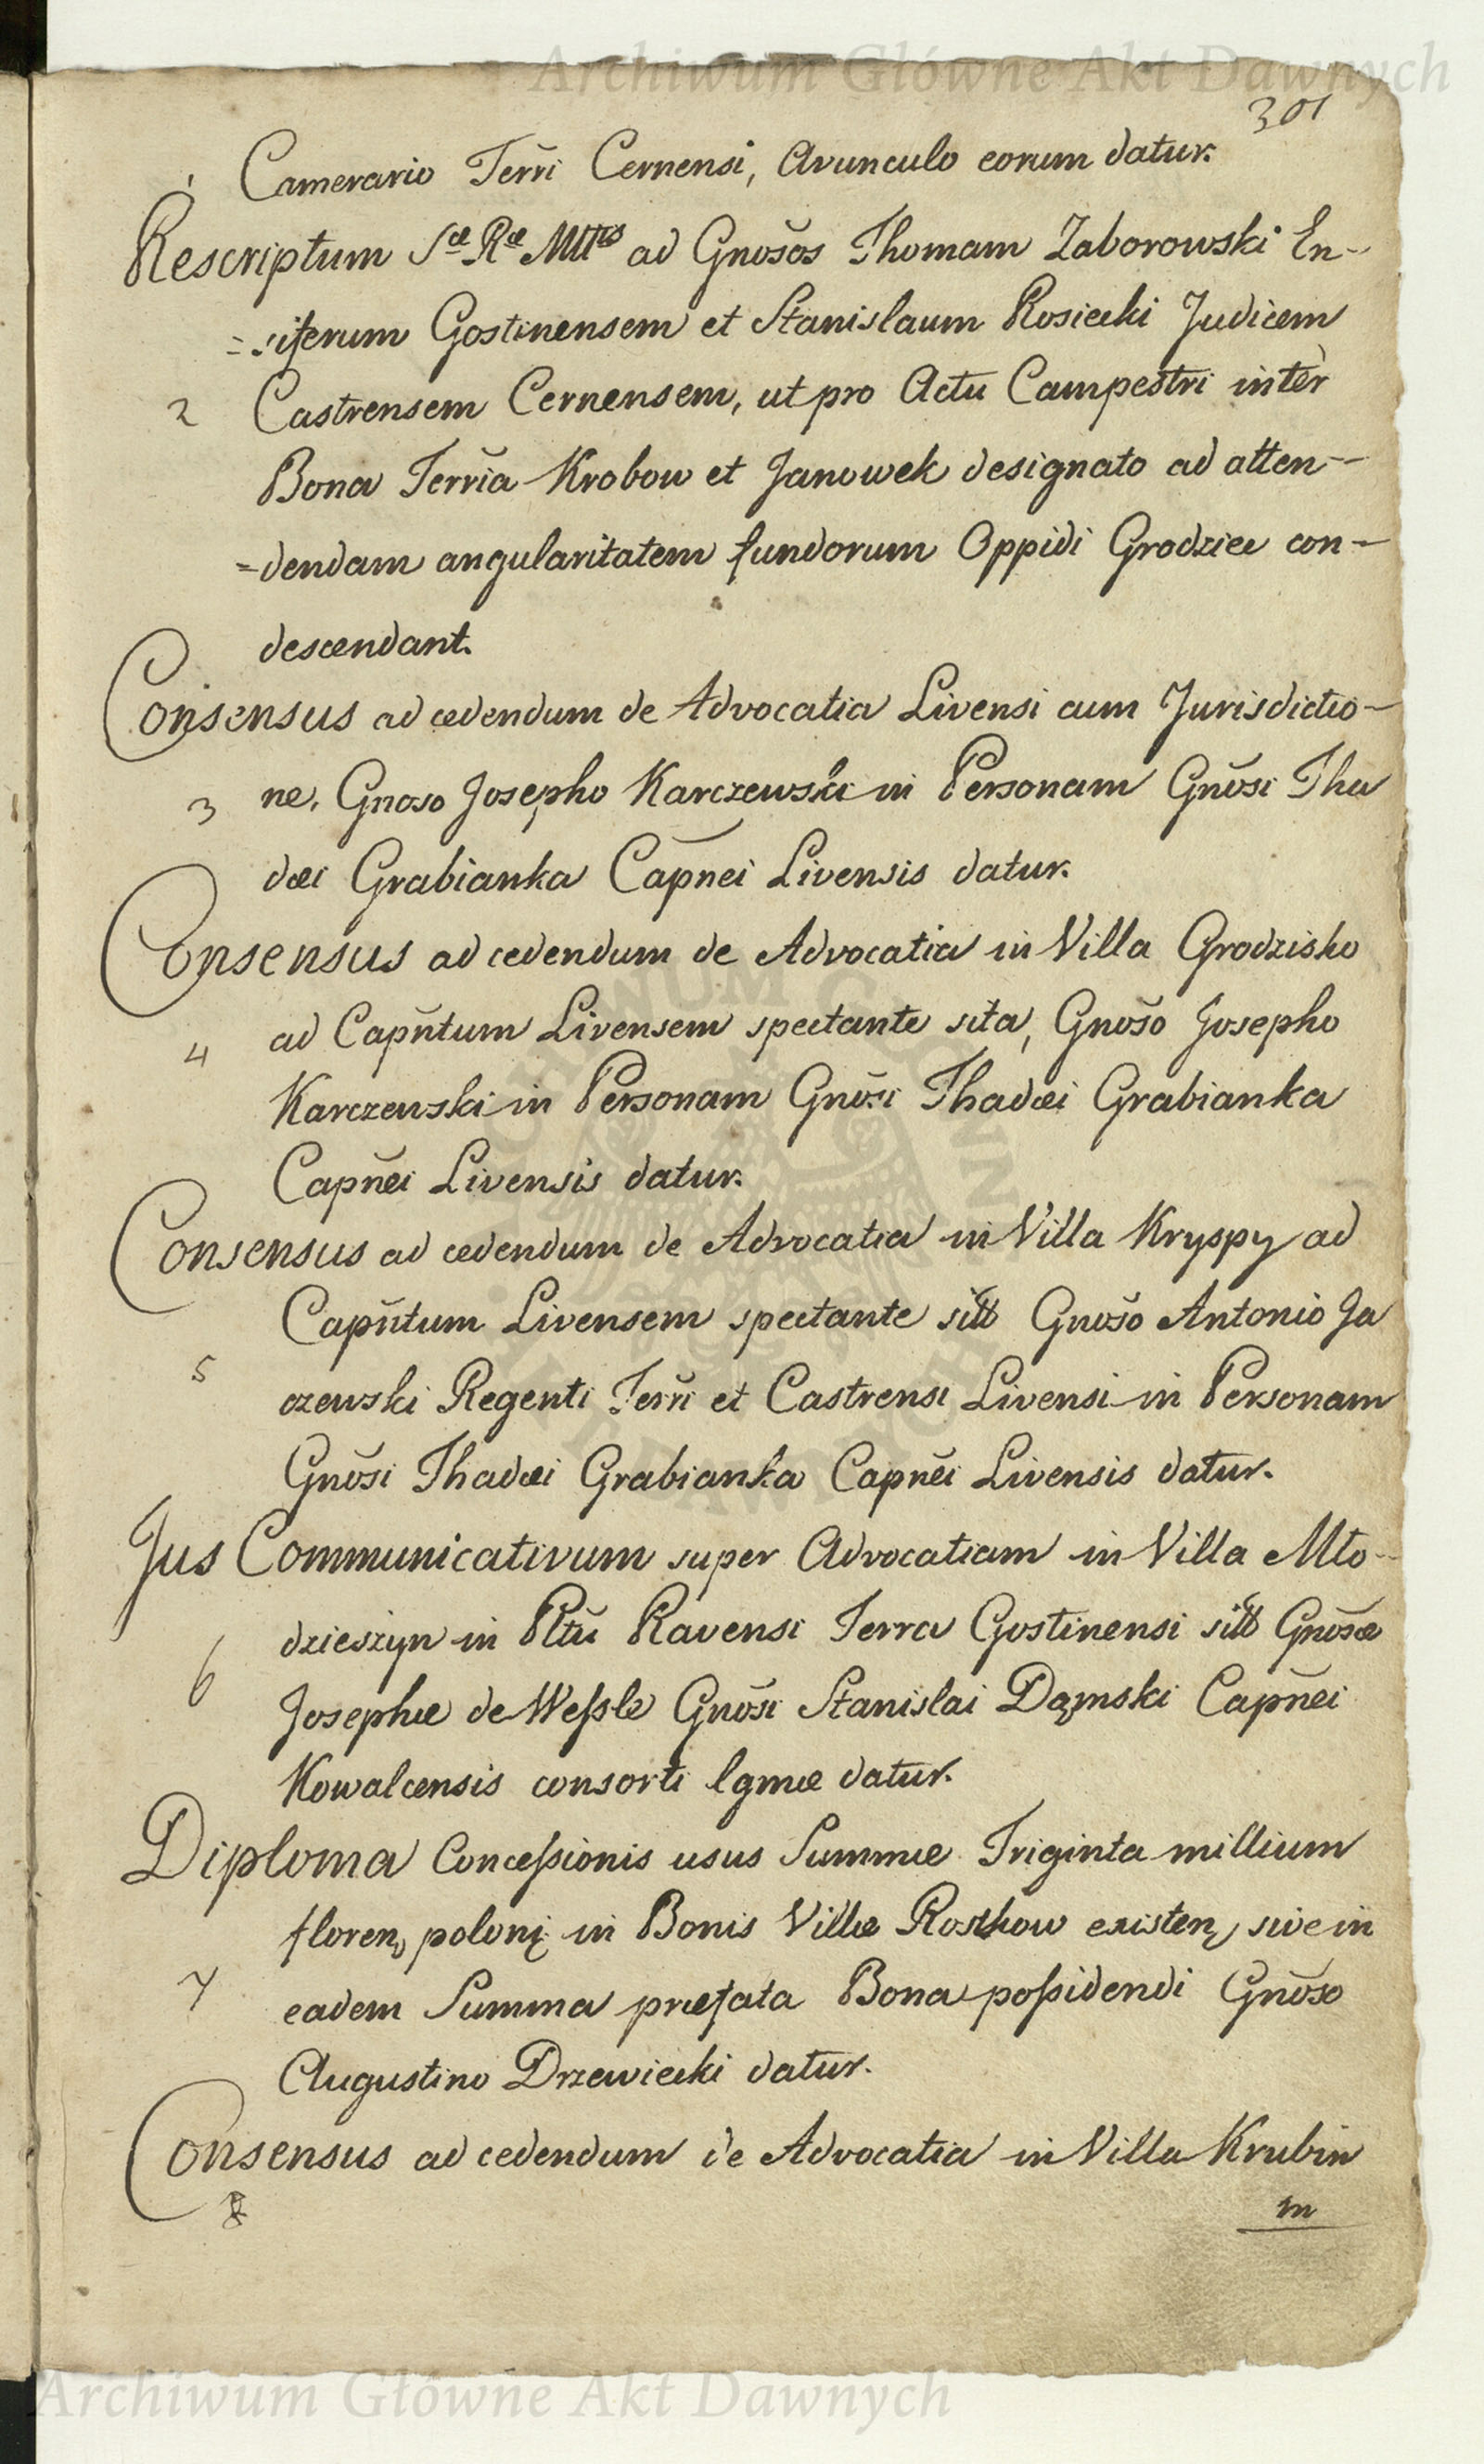 Archiwum Główne Akt Dawnych
301
1 Camerario Terri Cernensi, Avunculo eorum datur.
Rescriptum Sæ Ræ Mttis ad Gnosos Thomam Zaborowski En-
=siferum Gostinensem et Stanislaum Rosiecki Judicem
2 Castrensem Cernensem, ut pro Actu Campestri inter
Bona Terria Krobow et Janowek designato ad atten-
=dendam angularitatem fundorum Oppidi Grodziec con-
descendant.
Consensus ad cedendum de Advocatia Livensi cum Jurisdictio-
3 ne, Gnoso Josepho Karczewski in Personam Gnõsi Tha
dæi Grabianka Capnei Livensis datur.
Consensus ad cedendum de Advocatia in Villa Grodzisko
4 ad Capñtum Livensem spectante sita, Gnoso Josepho
Karczewski in Personam Gnõsi Thadæi Grabianka
Capñei Livensis datur.
Consensus ad cedendum de Advocatia in Villa Kryspy ad
Capñtum Livensem spectante sitt Gnoso Antonio Ja
5 czewski Regenti Terri et Castrensi Livensi in Personam
Gnõsi Thadæi Grabianka Capñei Livensis datur.
Jus Communicativum super Advocatiam in Villa Mło-
dzieszyn in Pttu Ravensi Terra Gostinensi sitt Gnõsæ
6 Josephæ de Weſsle Gnõsi Stanislai Dąmski Capñei
Kowalcensis consorti lgmæ datur.
Diploma Conceſsionis usus Summæ Triginta millium
floren, polonı̨ in Bonis Villæ Roszkow existen, sive in
7 eadem Summa præfata Bona poſsidendi Gnõso
Augustino Drzewiecki datur.
Consensus ad cedendum de Advocatia in Villa Krubin
8 in
Archiwum Główne Akt Dawnych